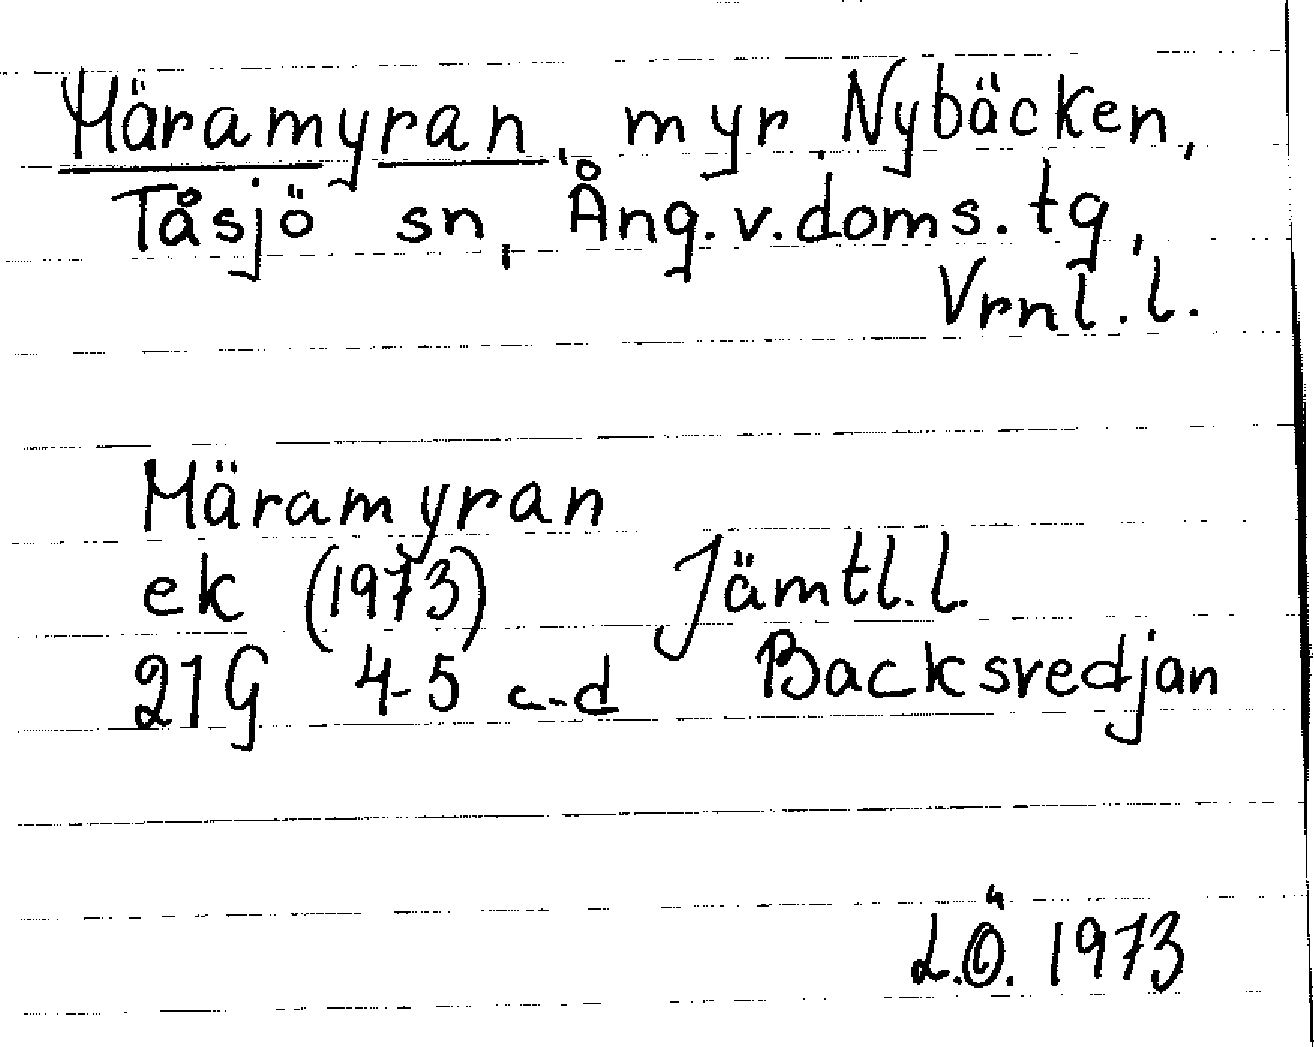 Märamyran, myr, Nybäcken,
Tåsjö sn, Ång. v. doms. tg,
Vrnl. l.
Märamyran
ek (1973) Jämtl. l.
21G 4-5 c-d Backsvedjan
L.Ö. 1973